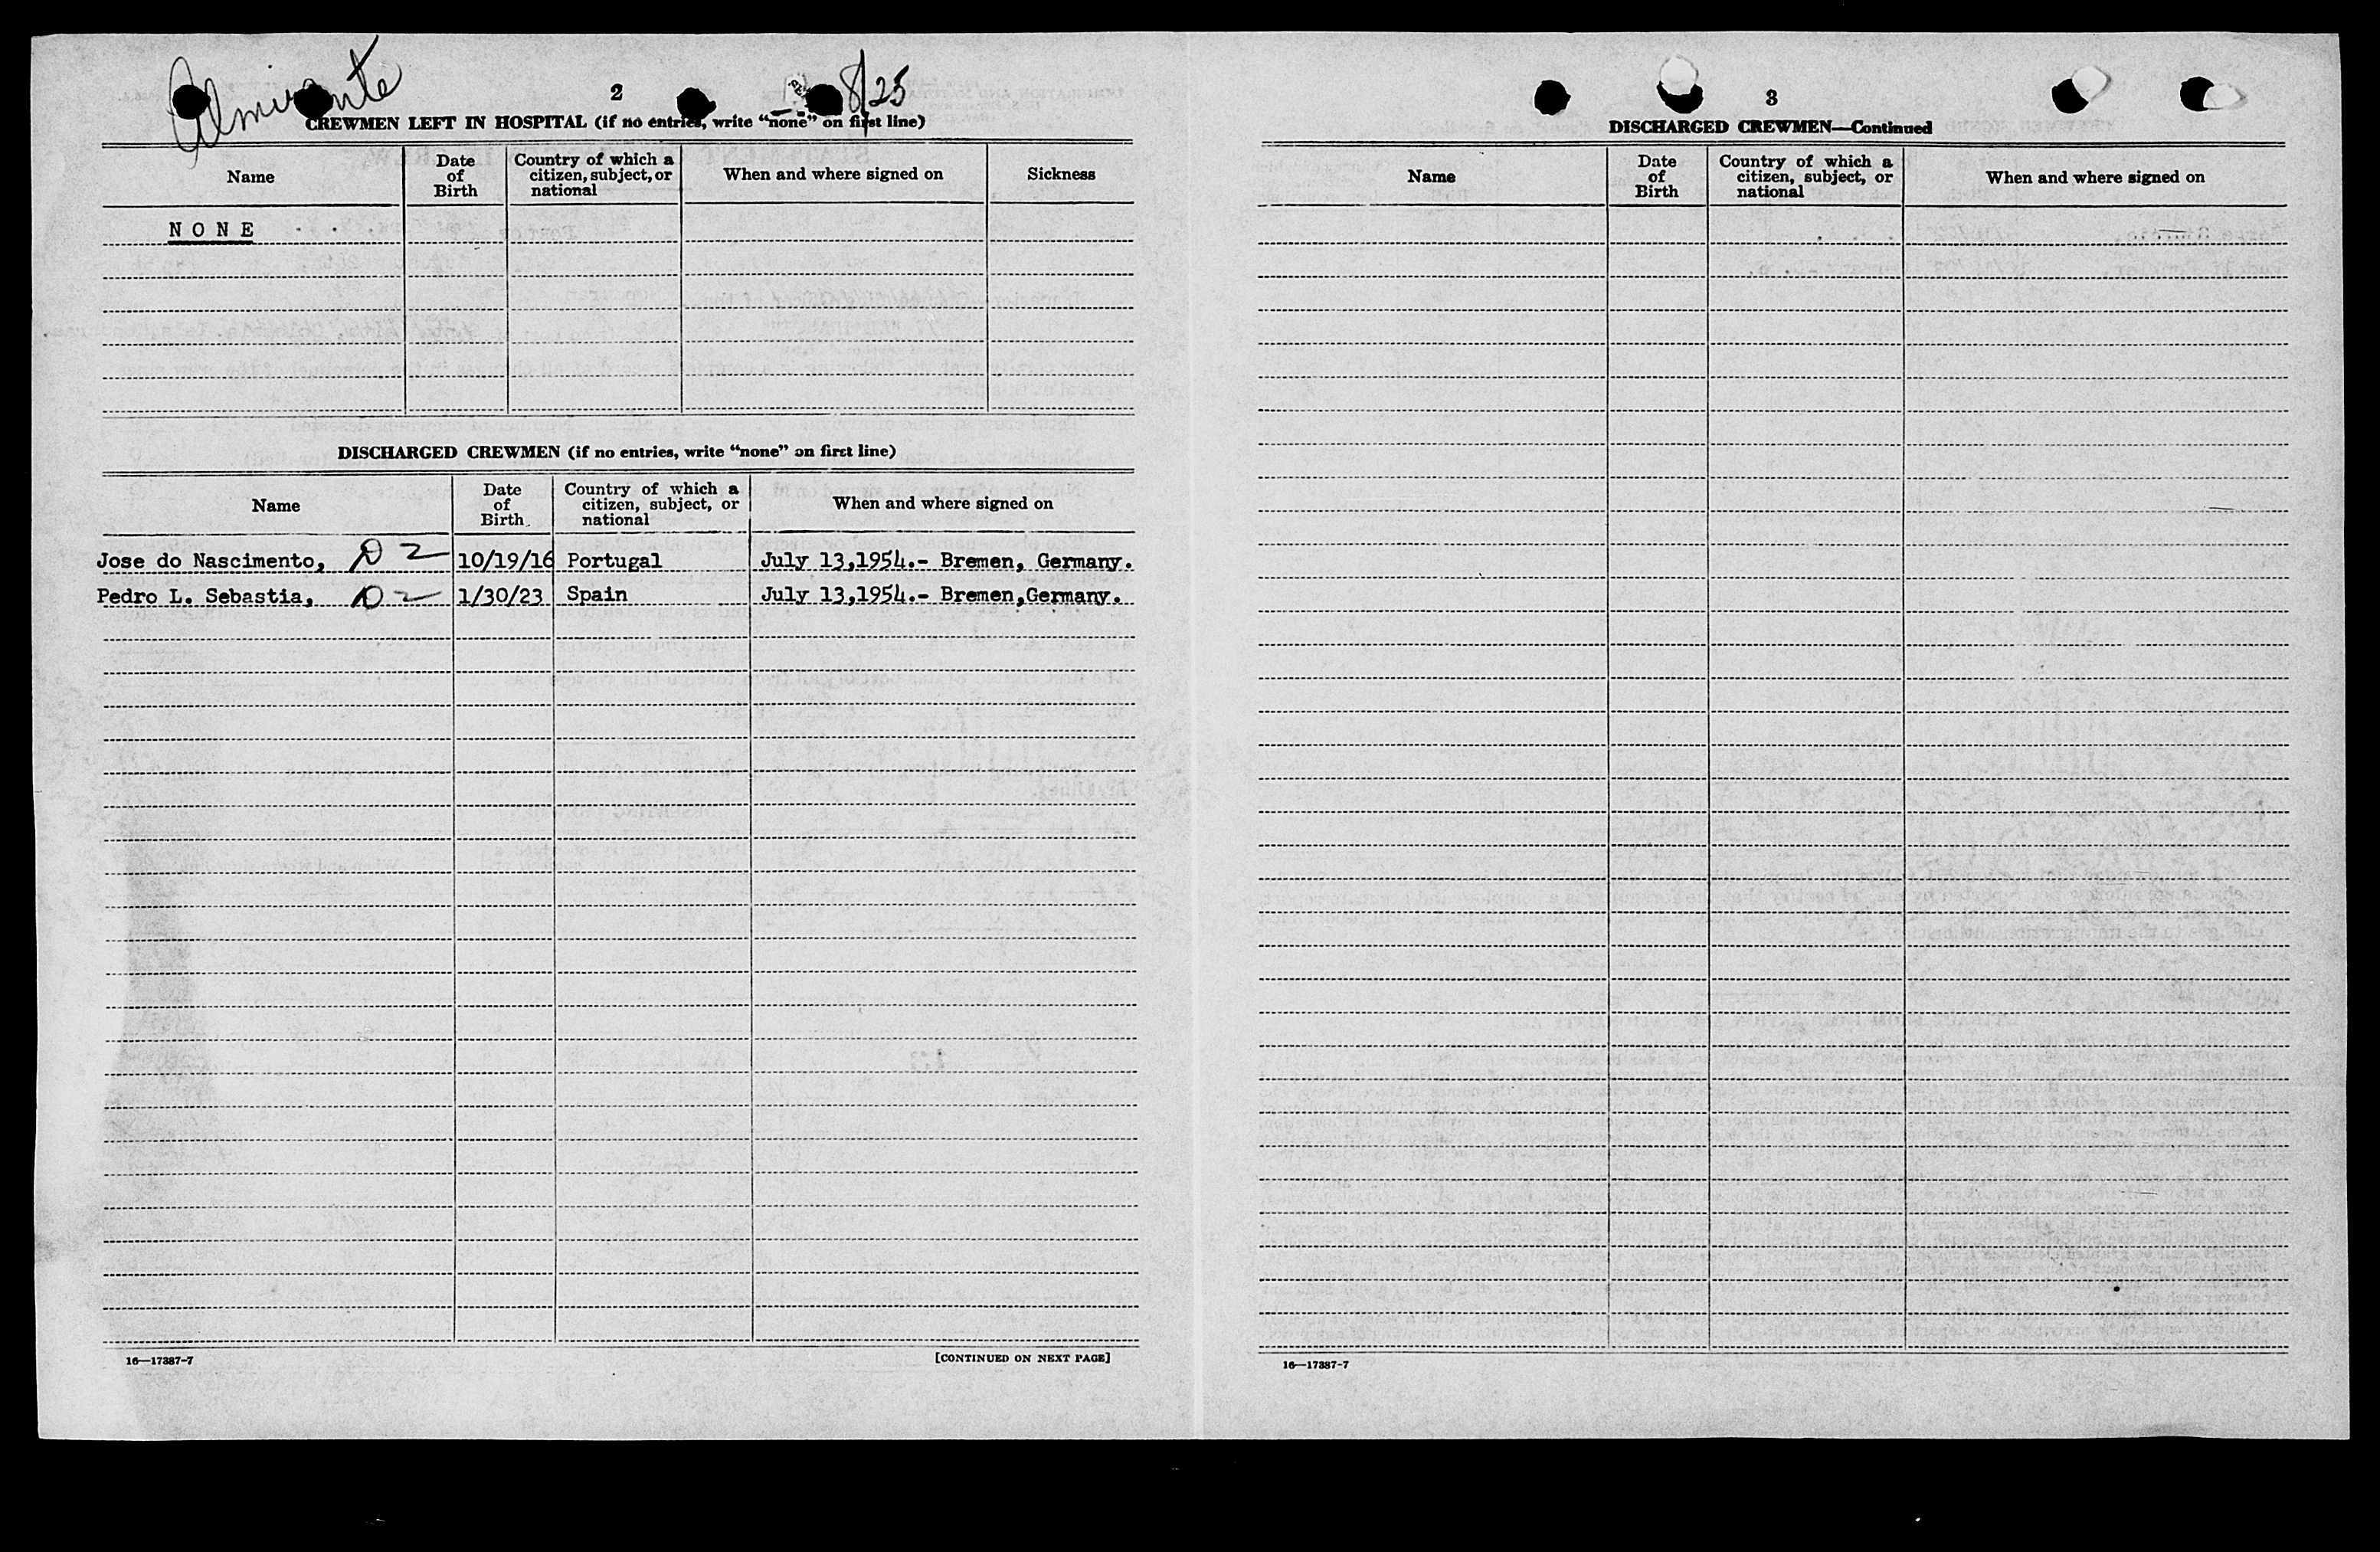 Almirante
2
8/25
CREWMEN LEFT IN HOSPITAL (if no entries, write “none” on first line)
Name
Date of Birth
Country of which a citizen, subject, or national
When and where signed on
Sickness
NONE
DISCHARGED CREWMEN (if no entries, write “none” on first line)
Name
Date of Birth
Country of which a citizen, subject, or national
When and where signed on
Jose do Nascimento, D 2 10/19/16 Portugal July 13,1954.- Bremen, Germany.
Pedro L. Sebastia, D 2 1/30/23 Spain July 13,1954.- Bremen,Germany.
16—17387-7
[CONTINUED ON NEXT PAGE]
3
DISCHARGED CREWMEN—Continued
Name
Date of Birth
Country of which a citizen, subject, or national
When and where signed on
16—17387-7